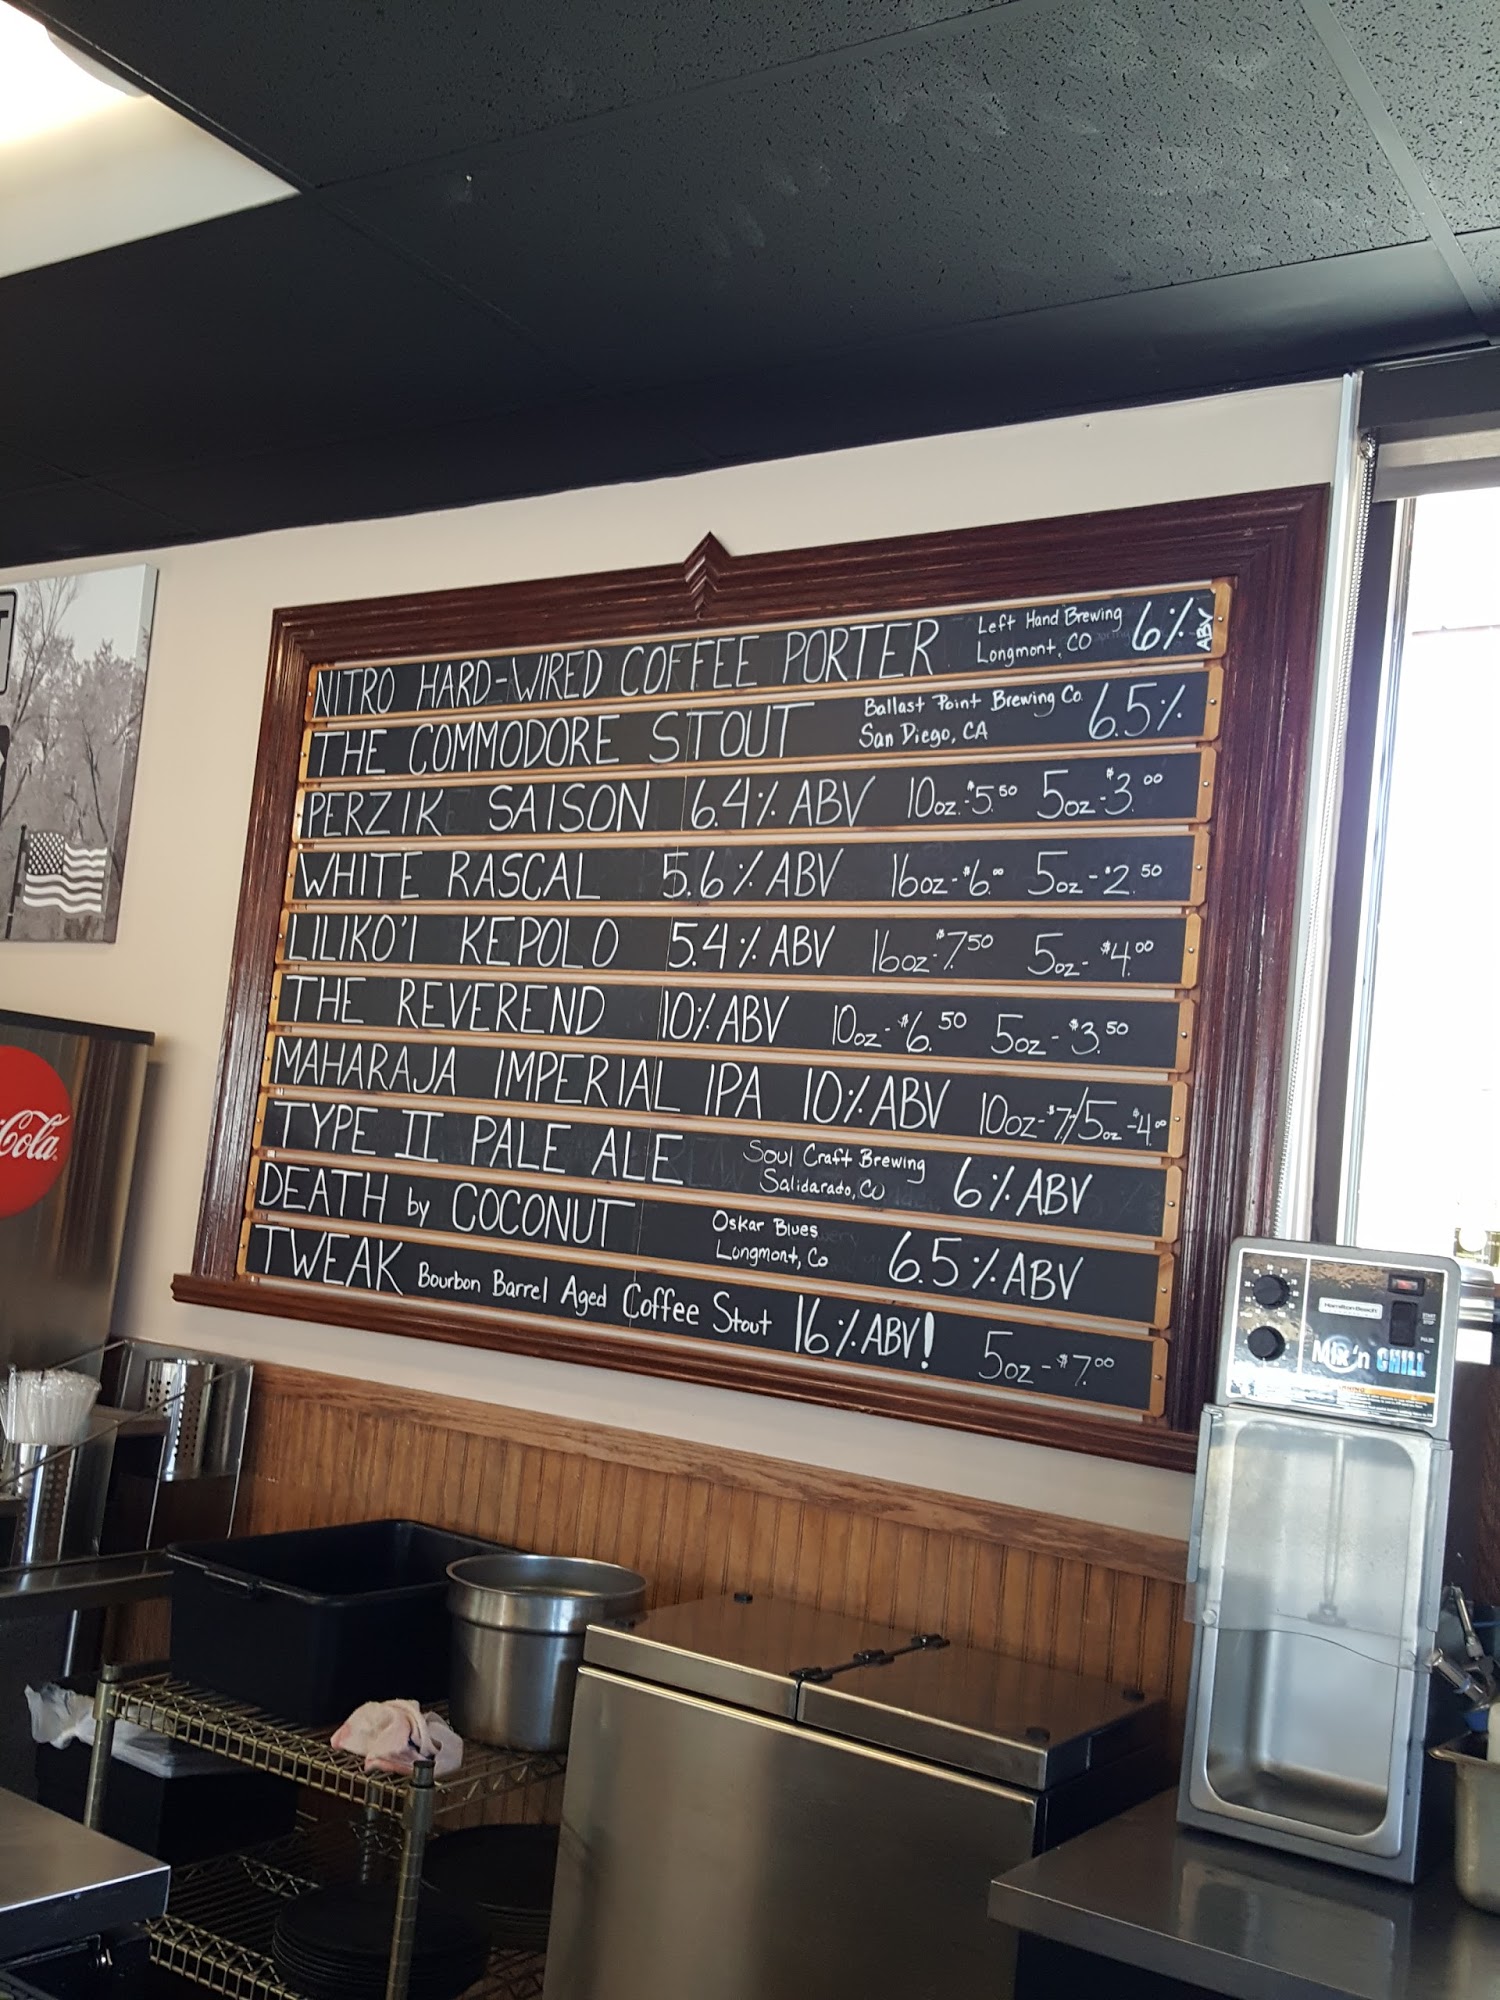 NITRO HARD-WIRED COFFEE PORTER Left Hand Brewing Longmont, CO 6% ABV
THE COMMODORE STOUT Ballast Point Brewing Co. San Diego, CA 6.5%
PERZIK SAISON 6.4% ABV 10oz.-$5.50 5oz-$3.00
WHITE RASCAL 5.6% ABV 16oz-$6.00 5oz-$2.50
LILIKO'I KEPOLO 5.4% ABV 16oz-$7.50 5oz-$4.00
THE REVEREND 10% ABV 10oz-$6.50 5oz-$3.50
MAHARAJA IMPERIAL IPA 10% ABV 10oz-$7./5oz-$4.00
TYPE II PALE ALE Soul Craft Brewing Salidarado, CO 6% ABV
DEATH by COCONUT Oskar Blues Longmont, Co 6.5% ABV
TWEAK Bourbon Barrel Aged Coffee Stout 16% ABV! 5oz-$7.00
Cola
Hamilton Beach
Mix'n CHILL